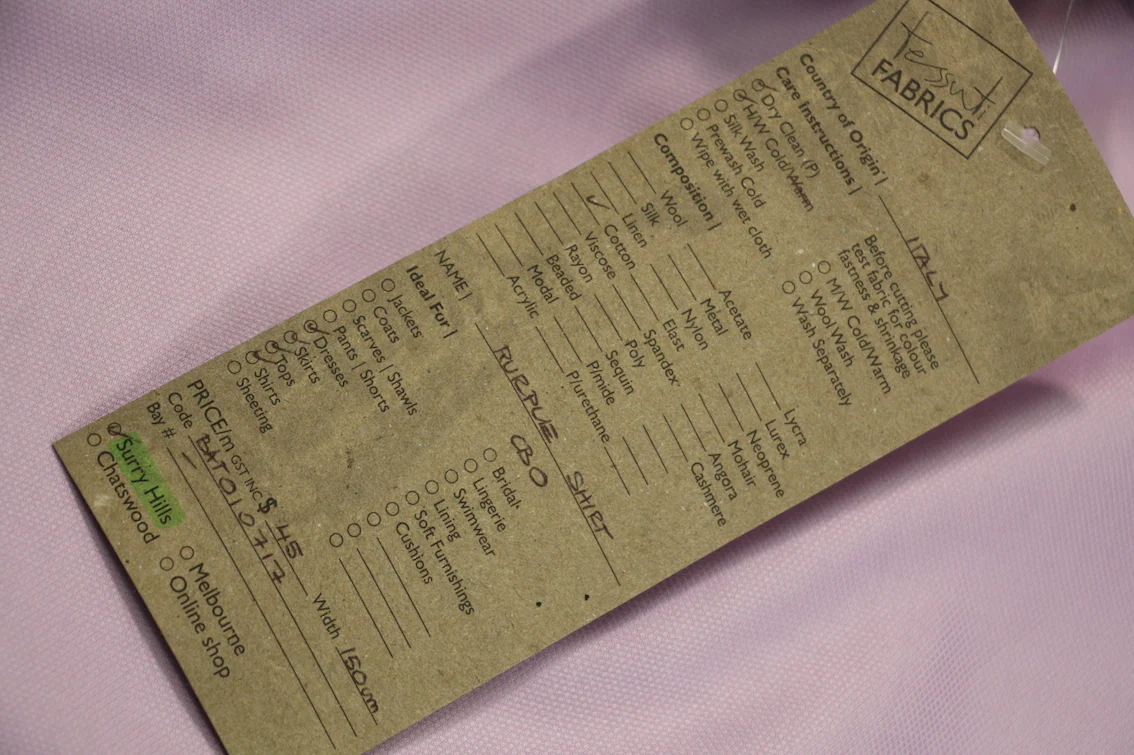 Tessuti
FABRICS
Country of Origin | ITALY
Care Instructions |
Dry Clean (P)
H/W Cold/Warm
Silk Wash
Prewash Cold
Wipe with wet cloth
Before cutting please
test fabric for colour
fastness & shrinkage
M/W Cold/Warm
Wool Wash
Wash Separately
Composition |
Wool
Silk
Linen
✓ Cotton
Viscose
Rayon
Beaded
Modal
Acrylic
Acetate
Metal
Nylon
Elast
Spandex
Poly
Sequin
P/mide
P/urethane
Lycra
Lurex
Neoprene
Mohair
Angora
Cashmere
NAME | RURPLE CBO SHIRT
Ideal For |
Jackets
Coats
Scarves | Shawls
Pants | Shorts
Dresses
Skirts
Tops
Shirts
Sheeting
Bridal
Lingerie
Swimwear
Lining
Soft Furnishings
Cushions
PRICE/m GST INC $ 45 Width 150cm
Code BAT010717
Bay # –
Surry Hills
Chatswood
Melbourne
Online shop